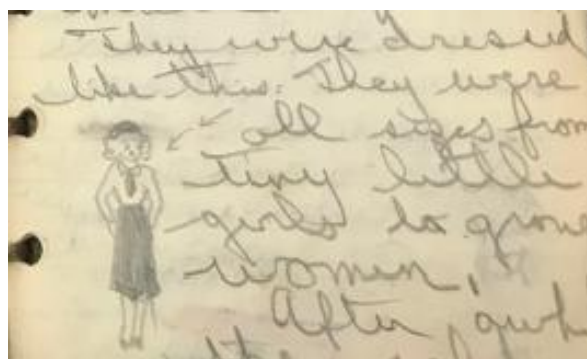 They were dresed
like this. They were
all sizes from
tiny little
girls to grow
women,
After awh